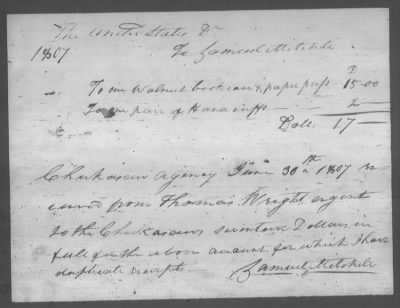 The United States Dr
1807 To Samuel Mitchell
To one Walnut book case & paper press 15.00
To one pair of Hand cuffs 2
Dolls. 17
Chickasaw Agency June 30th 1807 re
ceived from Thomas Wright agent
to the Chickasaws seventeen Dollars in
full for the above account for which I have
duplicate receipts
Samuel Mitchell